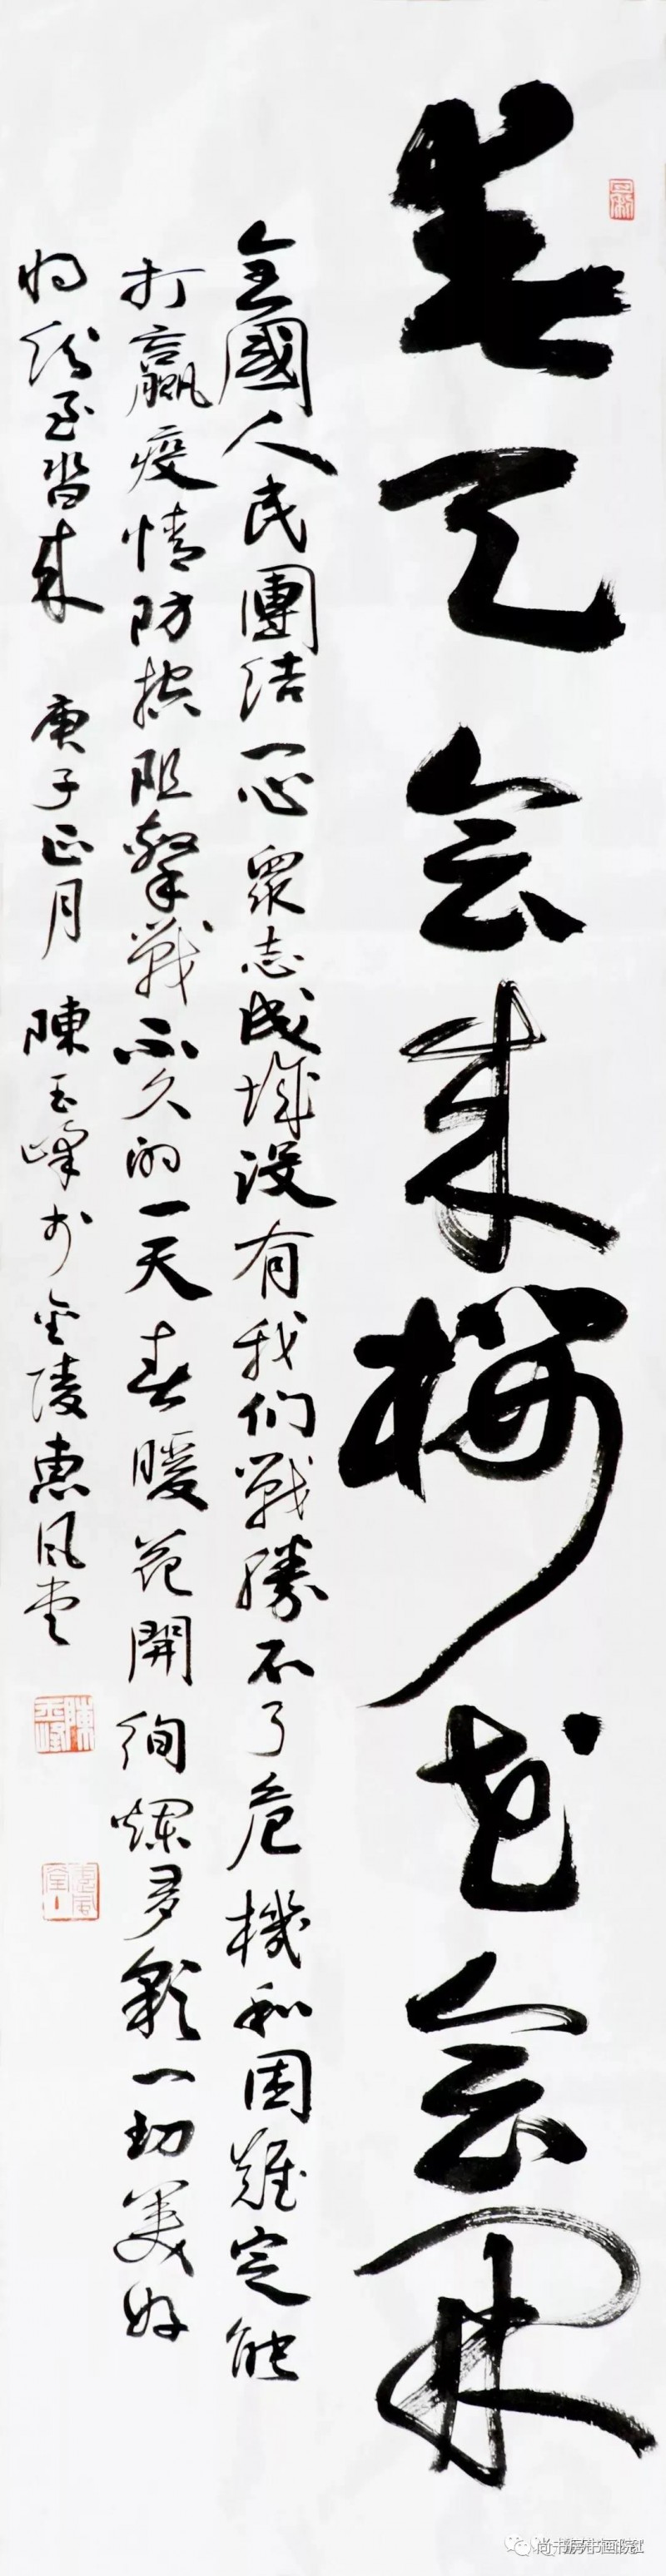 春天会来樱花会開
全國人民團结一心眾志成城没有我们戰勝不了危機和困難定能
打贏疫情防控阻擊戰不久的一天春暖花開絢爛多彩一切美好
将纷至沓来 庚子正月 陳玉峰於金陵惠風堂
陳玉峰
尚书房书画院